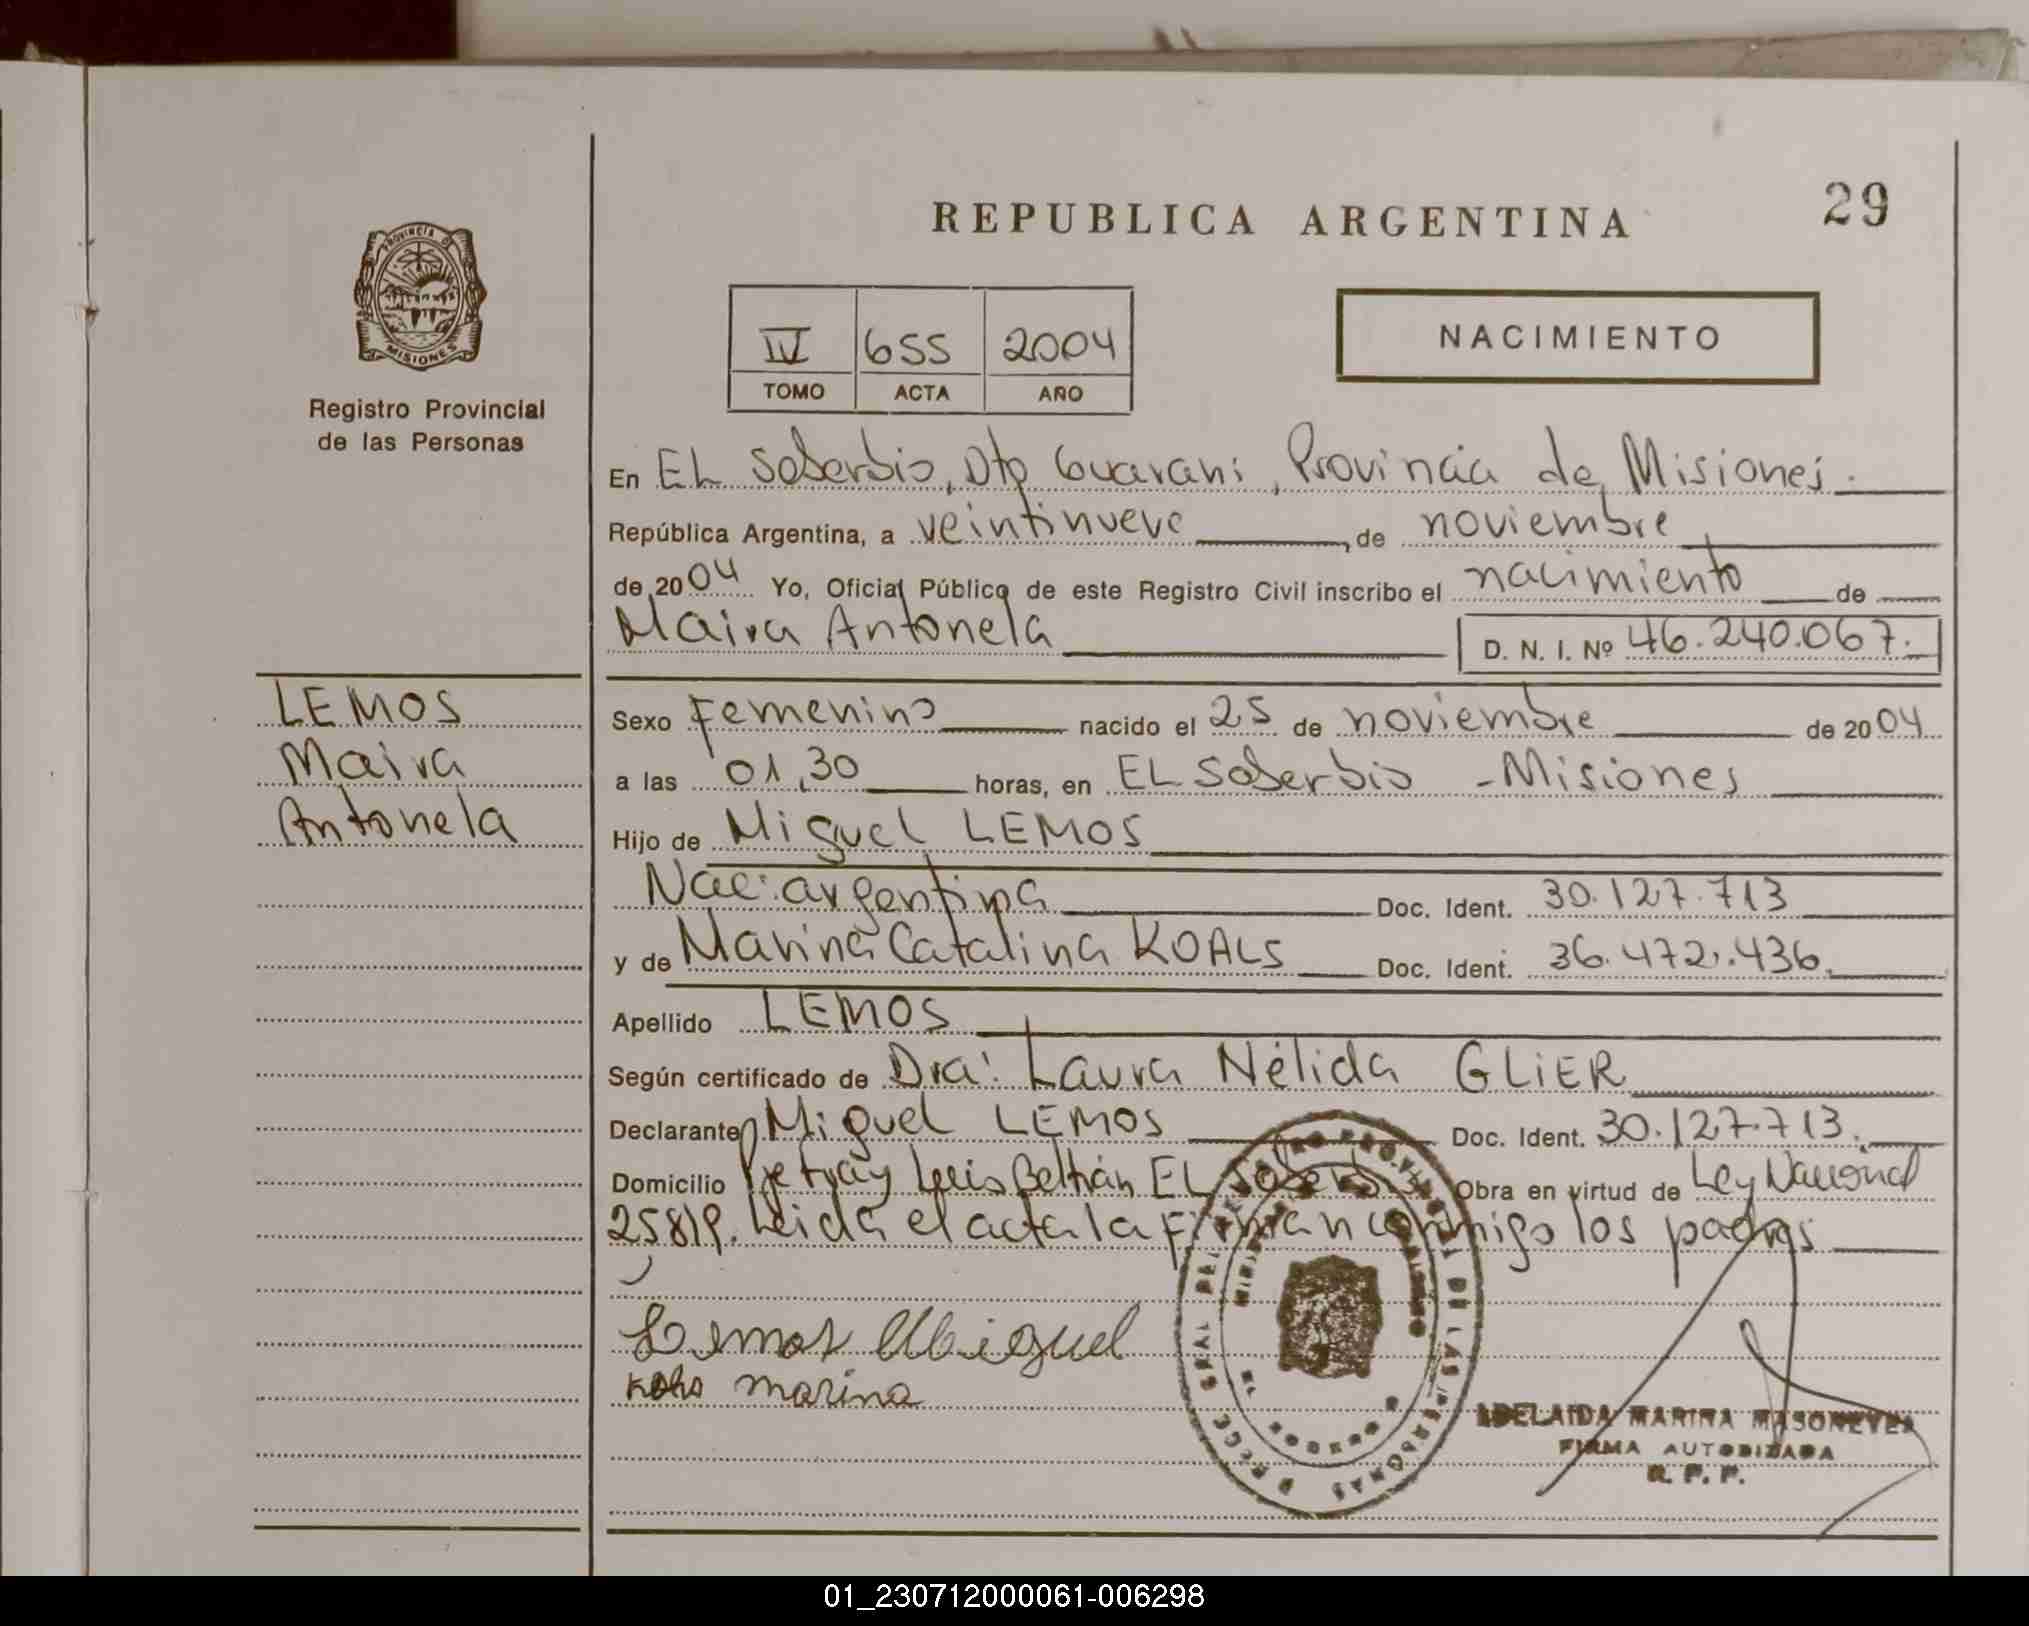 REPUBLICA ARGENTINA
29
PROVINCIA DE
MISIONES
Registro Provincial
de las Personas
IV 655 2004
TOMO ACTA AÑO
NACIMIENTO
En EL Soberbio, Dto Guarani, Provincia de Misiones.
República Argentina, a veintinueve, de noviembre
de 2004 Yo, Oficial Público de este Registro Civil inscribo el nacimiento de
Maira Antonela
D. N. I. Nº 46.240.067.
LEMOS
Maira
Antonela
Sexo Femenino nacido el 25 de noviembre de 2004
a las 01,30 horas, en EL Soberbio - Misiones
Hijo de Miguel LEMOS
Nac: argentina Doc. Ident. 30.127.713
y de Marina Catalina KOALS Doc. Ident. 36.472.436.
Apellido LEMOS
Según certificado de Dra: Laura Nélida GLIER
Declarante Miguel LEMOS Doc. Ident. 30.127.713.
Domicilio Luis Beltrán EL Soberbio Obra en virtud de Ley Nacional
25819. Leida el acta la firman conmigo los padres
Lemos Miguel
marina
ADELAIDA MARINA
FIRMA AUTORIZADA
R. P. P.
01_230712000061-006298